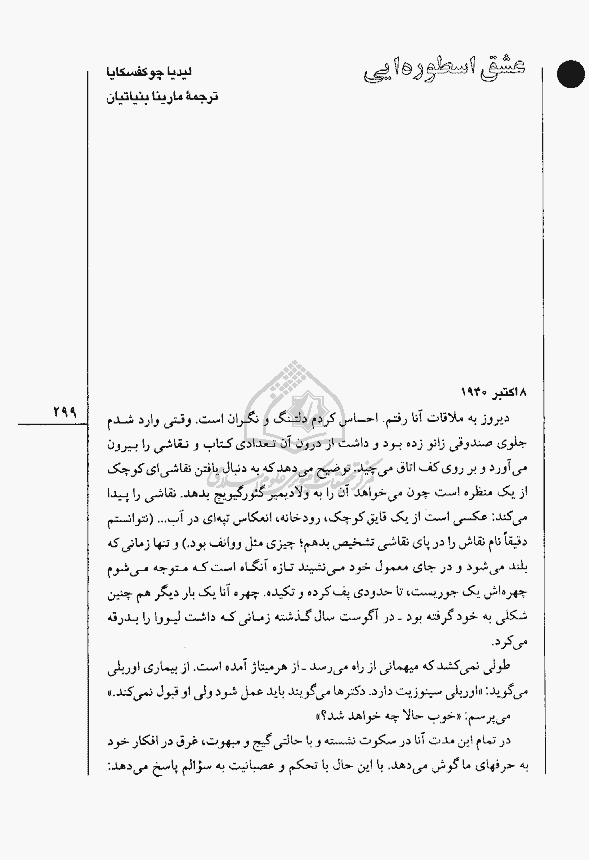 عشق اسطوره‌ایی
لیدیا چوکفسکایا
ترجمهٔ مارینا بنیاتیان
۲۹۹
۸ اکتبر ۱۹۴۰
دیروز به ملاقات آنا رفتم. احساس کردم دلتنگ و نگران است. وقتی وارد شدم
جلوی صندوقی زانو زده بود و داشت از درون آن تعدادی کتاب و نقاشی را بیرون
می‌آورد و بر روی کف اتاق می‌چید. توضیح می‌دهد که به دنبال یافتن نقاشی‌ای کوچک
از یک منظره است چون می‌خواهد آن را به ولادیمیر گئورگیویچ بدهد. نقاشی را پیدا
می‌کند: عکسی است از یک قایق کوچک، رودخانه، انعکاس تپه‌ای در آب... (نتوانستم
دقیقاً نام نقاش را در پای نقاشی تشخیص بدهم؛ چیزی مثل ووانف بود.) و تنها زمانی که
بلند می‌شود و در جای معمول خود می‌نشیند تازه آنگاه است که متوجه می‌شوم
چهره‌اش یک جوریست، تا حدودی پف کرده و تکیده. چهره آنا یک بار دیگر هم چنین
شکلی به خود گرفته بود ـ در آگوست سال گذشته زمانی که داشت لیووا را بدرقه
می‌کرد.
طولی نمی‌کشد که میهمانی از راه می‌رسد ـ از هرمیتاژ آمده است. از بیماری اوربلی
می‌گوید: «اوربلی سینوزیت دارد. دکترها می‌گویند باید عمل شود ولی او قبول نمی‌کند.»
می‌پرسم: «خوب حالا چه خواهد شد؟»
در تمام این مدت آنا در سکوت نشسته و با حالتی گیج و مبهوت، غرق در افکار خود
به حرفهای ما گوش می‌دهد. با این حال با تحکم و عصبانیت به سؤالم پاسخ می‌دهد: